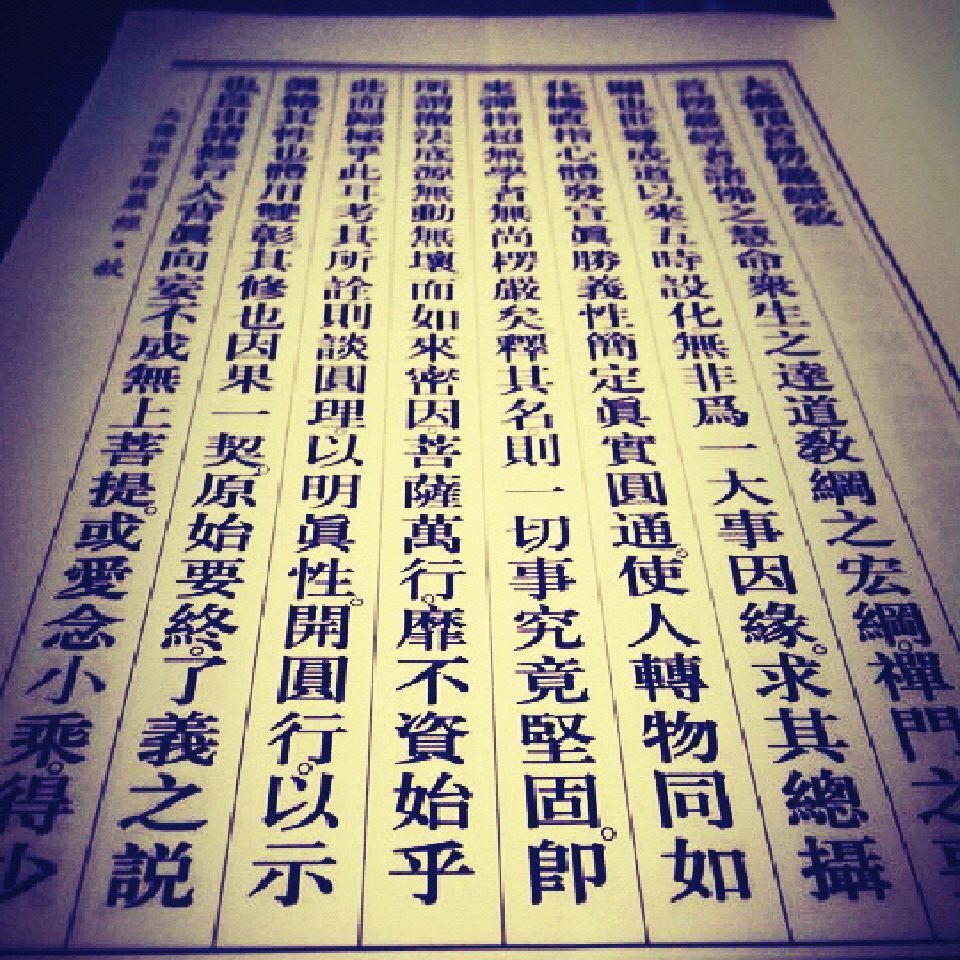 大佛頂首楞嚴經敘
首楞嚴經者諸佛之慧命衆生之達道敎綱之宏綱。禪門之
關也世尊成道以來五時設化無非爲一大事因緣。求其總攝
化機直指心體發宣眞勝義性簡定眞實圓通。使人轉物同如
來彈指超無學者無尚楞嚴矣釋其名。則一切事究竟堅固。卽
所謂徹法底源無動無壞而如來密因。菩薩萬行。靡不資始乎
此而歸極乎此耳考其所詮則談圓理。以明眞性。開圓行。以示
其性也體用雙彰其修也因果一契。原始要終。了義之説
也良由諸修行人背眞向妄不成無上菩提。或愛念小乘。得少
大佛頂首楞嚴經・敘